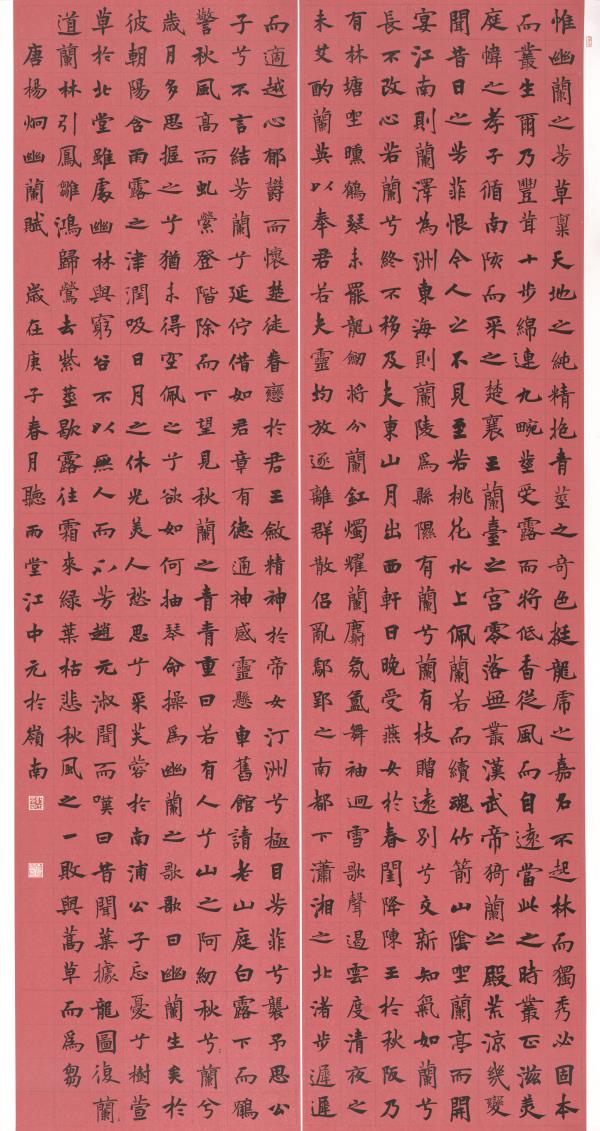 惟幽蘭之芳草稟天地之純精抱青莖之奇色挺龍虎之嘉名不起林而獨秀必固本
而叢生爾乃豐茸十步綿連九畹莖受露而將低香從風而自遠當此之時叢正滋美
庭幃之孝子循南陔而采之楚襄王蘭臺之宮零落無叢漢武帝猗蘭之殿荒涼幾變
聞昔日之芳菲恨今人之不見至若桃花水上佩蘭若而續魂竹箭山陰坐蘭亭而開
宴江南則蘭澤為洲東海則蘭陵為縣隰有蘭兮蘭有枝贈遠別兮交新知氣如蘭兮
長不改心若蘭兮終不移及夫東山月出西軒日晚受燕女於春閨降陳王於秋阪乃
有林塘坐曛鶴琴未罷龍劍將分蘭釭燭耀蘭麝氛氳舞袖迴雪歌聲遏雲度清夜之
未艾酌蘭英以奉君若夫靈均放逐離群散侶亂鄢郢之南都下瀟湘之北渚步遲遲
而適越心郁鬱而懷楚徒眷戀於君王斂精神於帝女汀洲兮極目芳菲兮襲予思公
子兮不言結芳蘭兮延佇借如君章有德通神感靈懸車舊館請老山庭白露下而鶴
警秋風高而虬縈登階除而下望見秋蘭之青青重曰若有人兮山之阿紉秋兮蘭兮
歲月多思握之兮猶未得空佩之兮欲如何抽琴命操為幽蘭之歌歌曰幽蘭生矣於
彼朝陽含雨露之津潤吸日月之休光美人愁思兮采芙蓉於南浦公子忘憂兮樹萱
草於北堂雖處幽林與窮谷不以無人而不芳趙元淑聞而嘆曰昔聞葉據龍圖復蘭
道蘭林引鳳雛鴻歸鶯去紫莖歇露往霜來綠葉枯悲秋風之一敗與蒿草而為芻
唐楊炯幽蘭賦 歲在庚子春月聽雨堂江中元於嶺南